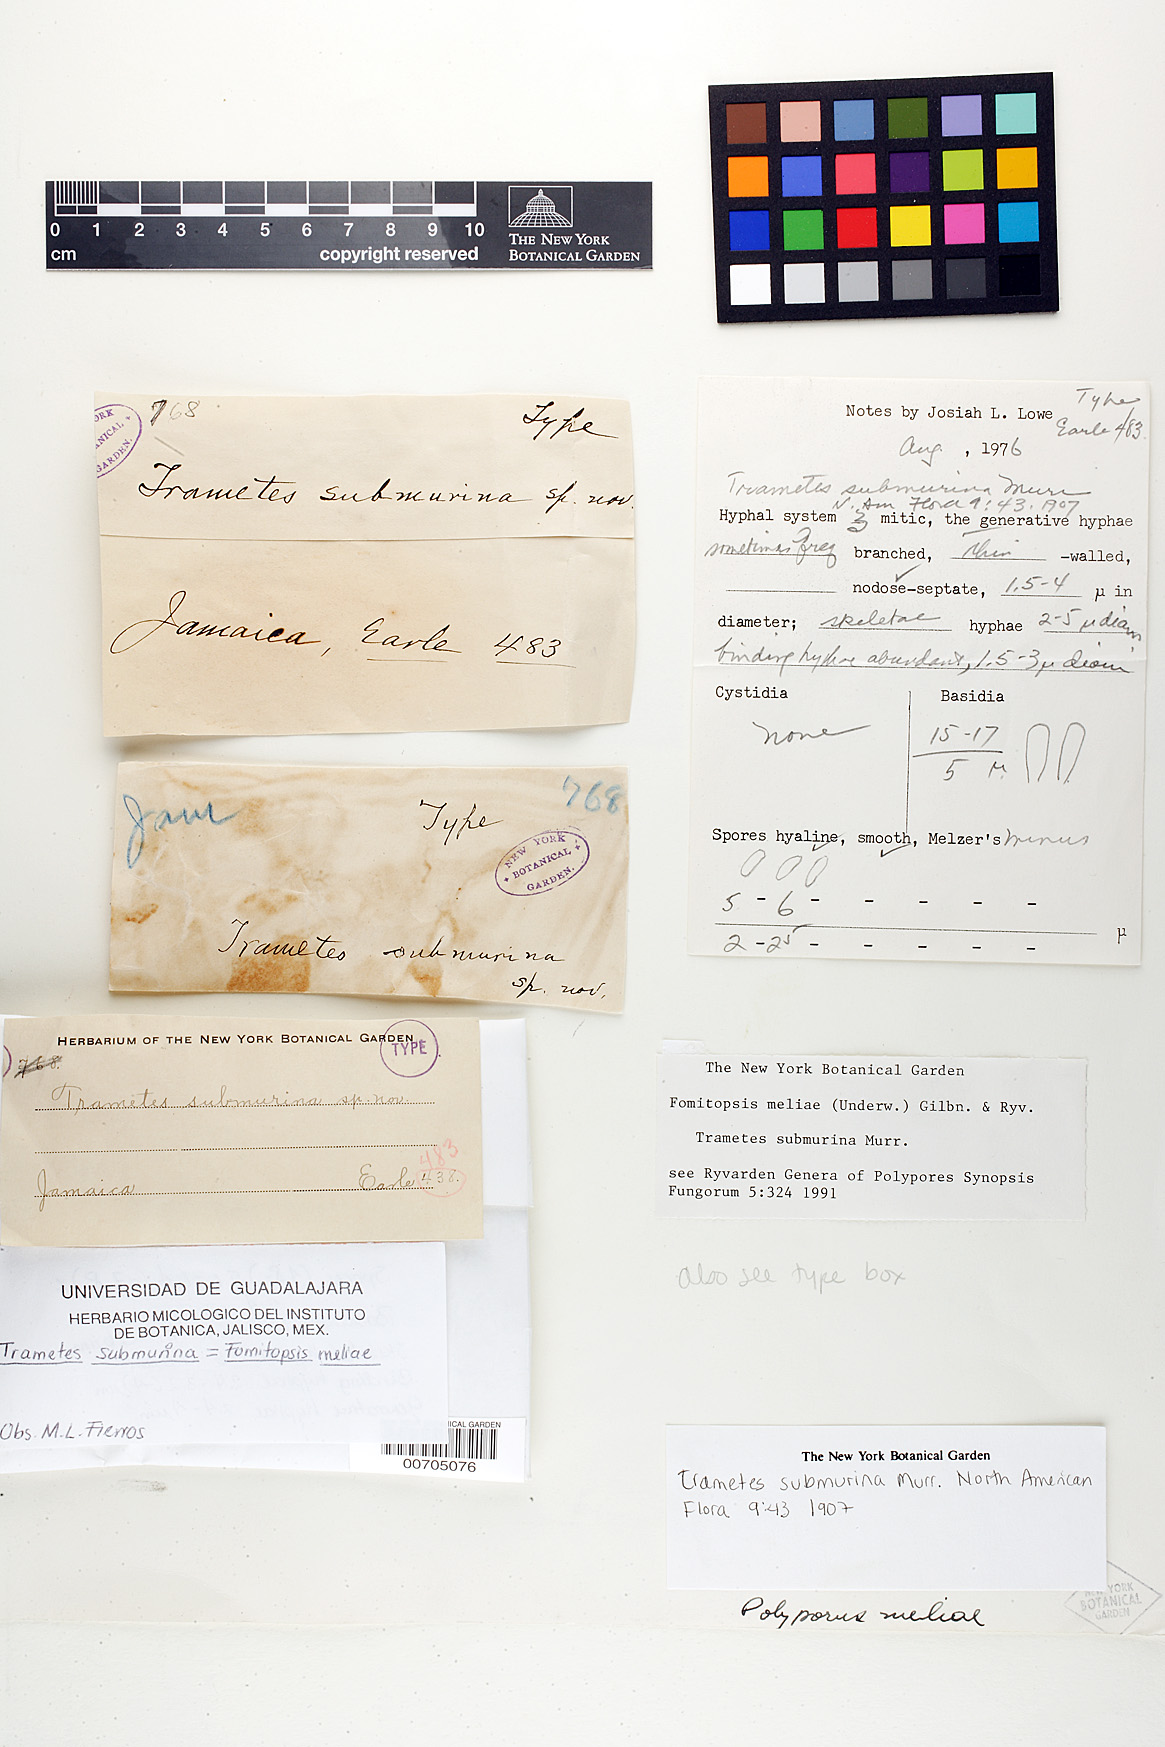 0 1 2 3 4 5 6 7 8 9 10
cm
copyright reserved
THE NEW YORK
BOTANICAL GARDEN
768
Type
ORK
ANICAL
GARDEN.
Trametes submurina sp. nov.
Jamaica, Earle 483
Jam
Type
768
NEW YORK
BOTANICAL
GARDEN.
Trametes submurina
sp. nov.
HERBARIUM OF THE NEW YORK BOTANICAL GARDEN
TYPE
768.
Trametes submurina sp. nov.
483
Jamaica Earle 438.
UNIVERSIDAD DE GUADALAJARA
HERBARIO MICOLOGICO DEL INSTITUTO
DE BOTANICA, JALISCO, MEX.
Trametes submurina = Fomitopsis meliae
Obs. M.L. Fierros
ICAL GARDEN
00705076
Type
Notes by Josiah L. Lowe
Earle 483
Aug. , 1976
Trametes submurina Murr
N. Am Flora 9:43. 1907
Hyphal system 3 mitic, the generative hyphae
sometimes freq branched, thin -walled,
nodose-septate, 1.5-4 µ in
diameter; skeletae hyphae 2-5 µ diam
binding hyphae abundant, 1.5-3µ diam
Cystidia Basidia
none
15-17
5 µ
Spores hyaline, smooth, Melzer's minus
5 - 6 - - - -
µ
2 - 25 - - - -
The New York Botanical Garden
Fomitopsis meliae (Underw.) Gilbn. & Ryv.
Trametes submurina Murr.
see Ryvarden Genera of Polypores Synopsis
Fungorum 5:324 1991
also see type box
The New York Botanical Garden
Trametes submurina Murr. North American
Flora 9:43 1907
Polyporus meliae
NEW YORK
BOTANICAL
GARDEN